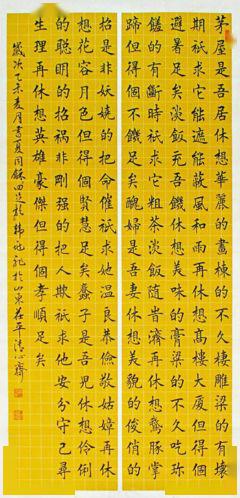 茅屋是吾居休想華麗的畫棟的不久棲雕梁的有壞
期祇求它能遮能蔽風和雨再休想高樓大廈但得個
避暑足矣淡飯充吾饑休想美味的膏粱的不久吃珍
饈的有斷時祇求它粗茶淡飯隨肯濟再休想鵞豚掌
蹄但得個不饑足矣醜婦是吾妻休想美貌的俊俏的
招是非妖嬈的把命催祇求她溫良恭儉敬姑嫜再休
想花容月色但得個賢慧足矣蠢子是吾兒休想伶俐
的聰明的招禍非剛强的把人欺祇求他安分守己尋
生理再休想英雄豪傑但得個孝順足矣
歲次乙未麦月書夏同龢於山東茌平清心齋